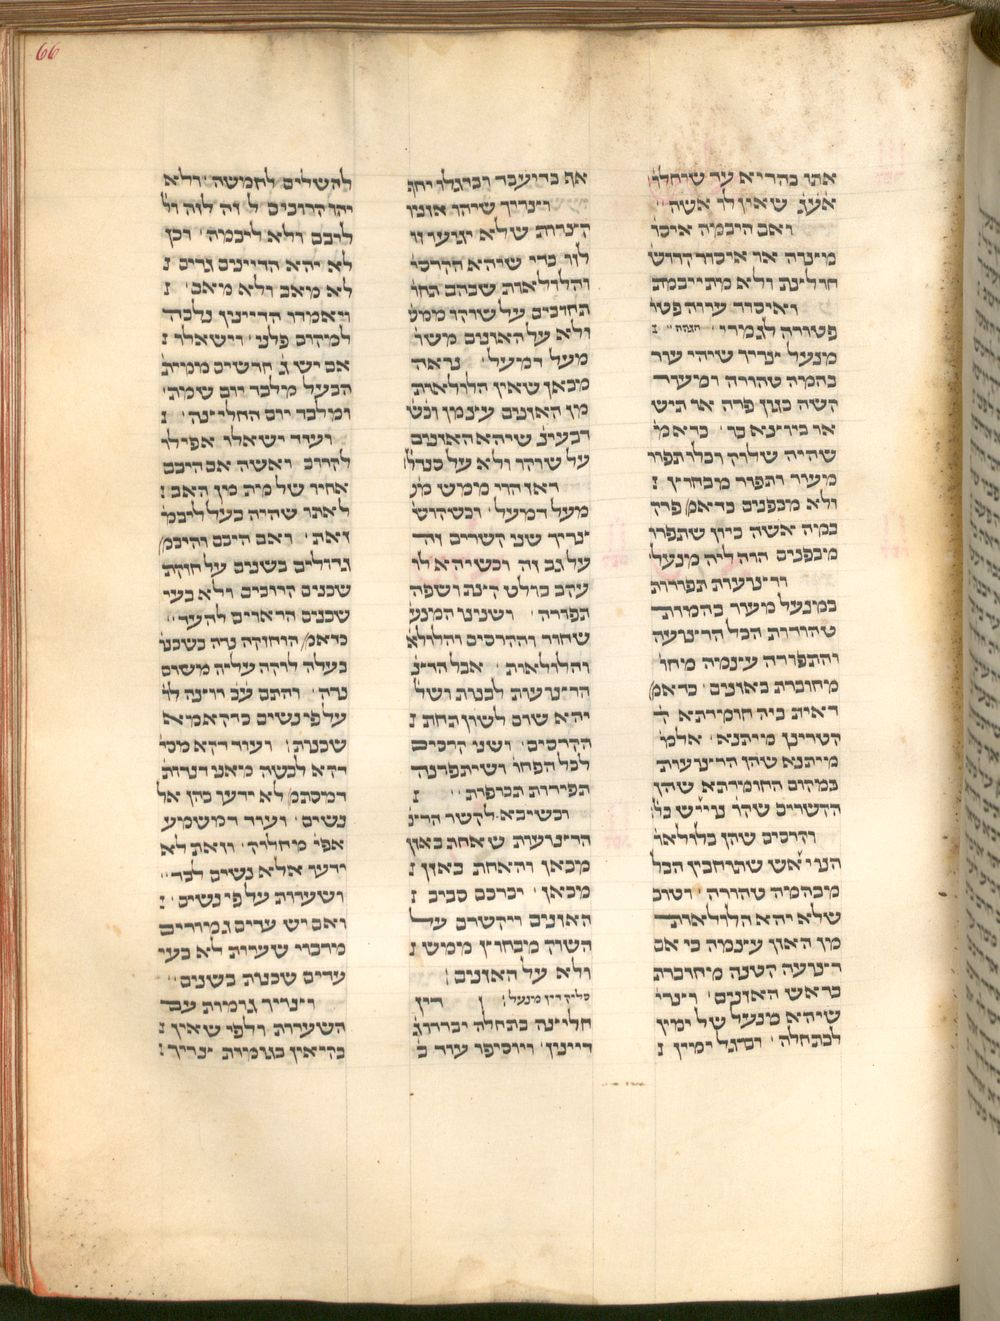 66
אתו בהדיא עד שיחלו׳
אעג שאין לו אשה
ואם היבמה איסו׳
מיצוה או איסור קדוש׳
חולצת ולא מתייבמת
ואיסור ערוה פטו׳
פטורה לגמרי הצעת
מנעל צריך שיהי׳ עור
בהמה טהורה ומעור
השה כגון פרה או תיש
או כיוצא בו׳ כדאמ׳
שהיה שלוק וכלי תפור׳
מעור ותפור מבחוץ
ולא מבפנים כדאמ׳ פרק
במה אשה כיון שתפרו
מבפנים הוה ליה מנעל׳
ורצועות תפורות
במנעל מעור בהמות
טהורות הכל הרצועה
והתפורה עצמה מחו׳
מחוברת באזנים כדאמ׳
דאית ביה חומרתא
קטרינן מייתנא אלמ׳
מייתנא שהן הרצועות
במקום החומרתא שהן
הקשרים שהן׳ שייש בל׳
וקרסים שהן בלולאו׳
העיאש שתוחבין הכל
מבהמה טהורה׳ וטוב
שלא יהא הלולאות
מן האזן עצמה כי אם
רצועה קטנה מחוברת
בראש האזנים׳ וצרי׳
שיהא מנעל של ימין
לכתחלה׳ ורגל ימין
אף בדיעבד וברגלו יחף
וצריך שיהו אזניו
קצרות שלא יגעו זו
לזו כדי שיהא הקרסי׳
והלולאות שבהם תחו׳
תחובים על שוקו ממש
ולא על האזנים משו׳
מעל דמעל׳ נראה
מכאן שאין הלולאות
מן האזנים עצמן וכש׳
דבעינ׳ שיהא האזנים
על שוקו ולא על סנדל׳
דאז הוי ממש מע׳
מעל דמעל׳ וכשקוש׳
צריך שני קשרים זה
על גב זה וכשיהא לו
עקב בולט קצת ושפה
תפורה׳ ושנינו המנע׳
שחור והקרסים והלולא׳
והלולאות׳ אבל הרצ׳
הרצועות לבנות ושל׳
יהא שום לשון תחת
הקרסים׳ ושני קרסים
לכל הפחו׳ ושיתפרנה
תפירות תכופות
וכשיבא לקשר הרצ׳
הרצועות שאחת באזן
מכאן והאחת באזן
מכאן׳ יכרכם סביב
האזנים ויקשרם על
השוק מבחוץ ממש
ולא על האזנים
סליק דין מנעל׳ דין
חליצה בתחלה יבררו ג׳
דיינין׳ ויוסיפו עוד ב׳
להשלים לחמשה׳ ולא
יהו קרובים לזה לזה ול׳
ליבם ולא ליבמה׳ וכן
לא יהא הדיינים גרים
לא מאב ולא מאם׳
ויאמרו הדיינין נלכה
למקום פלני׳ וישאלו
אם יש ג׳ חדשים ממית׳
הבעל מלבד יום שמת׳
ומלבד יום החליצה׳
ועוד ישאלו אפילו
לקרוב ואשה אם היבם
אחיו של מת מן האב
לאתו שהיה בעל ליבמ׳
זאת׳ ואם היבם והיבמ׳
גדולים בשנים על חזקת
שכנים קרובים ולא בעי׳
שכנים הראוים להעד׳
כדאמ׳ הוחזקה נדה בשכנו׳
בעלה לוקה עליה משום
נדה׳ והתם עב ויצה לו׳
על פי נשים כדקאמ׳ א׳
שכנות׳ ועוד דהא מסו׳
דהא לבשה מאנו דנדות
דמסתמ׳ לא ידעו בהן אל
נשים׳ ועוד דמשמע
אפי׳ מחליק׳ וזאת לא
ידעך אלא נשים לבד
ושערות על פי נשים
ואם יש עדים גמורים
מדברי שערות לא בעי׳
עדים שכנות בשנים
וצריך גומות עם
השערות ולפי שאין
בקיאין בגומות צריך